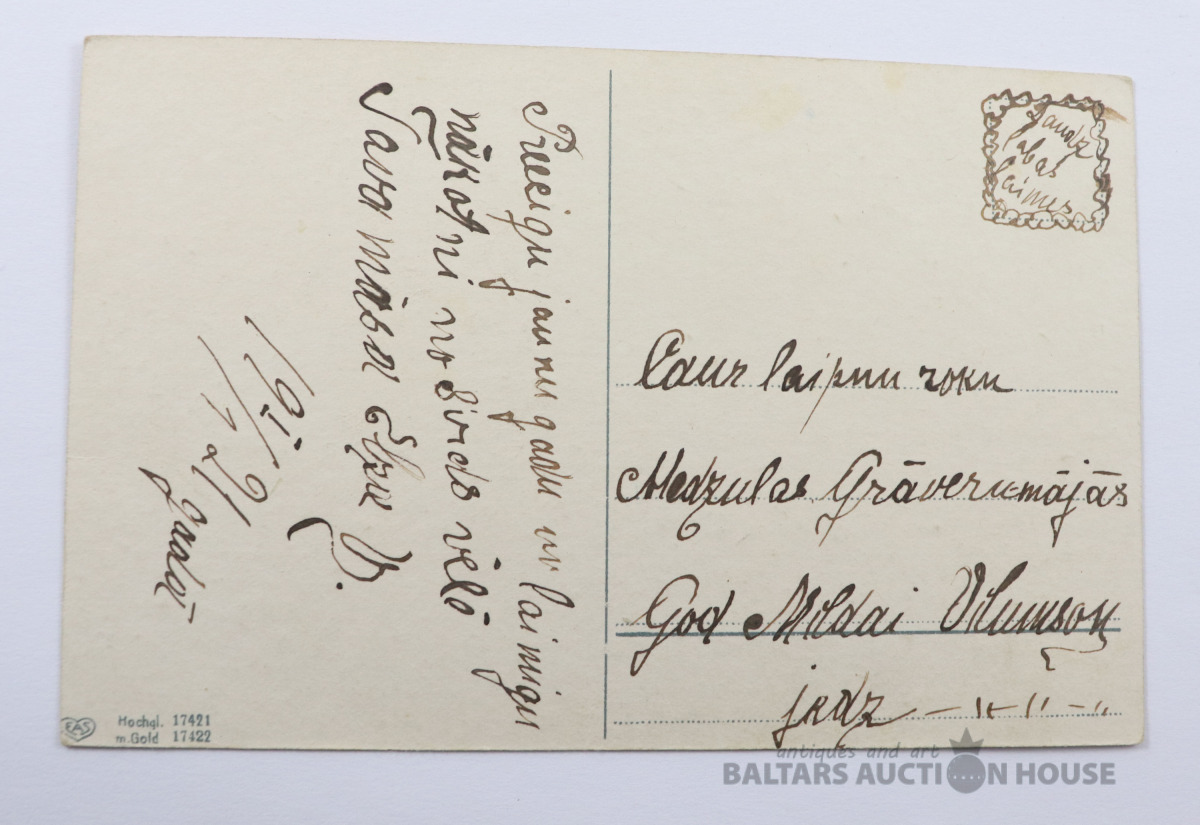 Priecigu jaunu gadu un laimigu
nākotni no sirds vēlē
Tava māsa
191 21/1 gadā
Daudz
labas
laimes
Caur laipnu roku
Medzulas Grāveru-mājās
God Mildai Vilumson
jkdz — " — " — "
EAS
Hochgl. 17421
m.Gold 17422
antiques and art
BALTARS AUCTION HOUSE